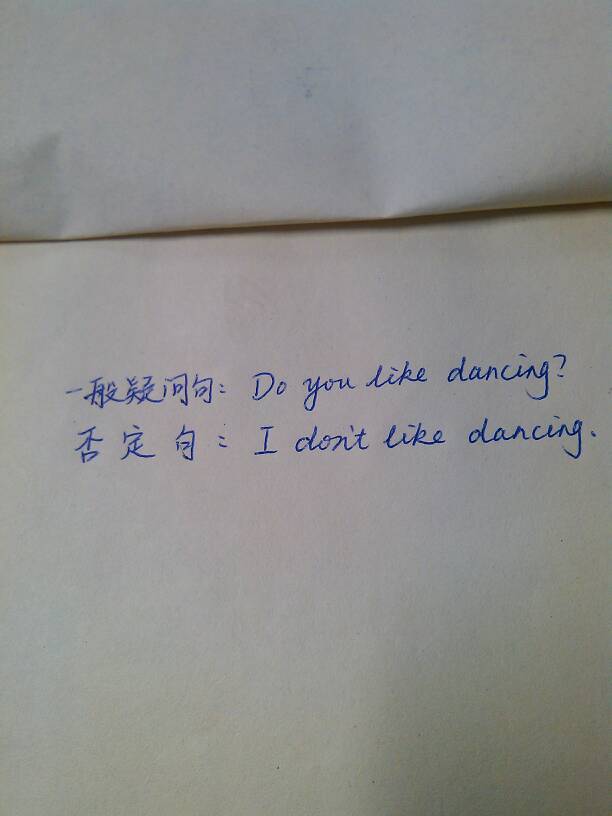 一般疑问句: Do you like dancing?
否定句: I don't like dancing.